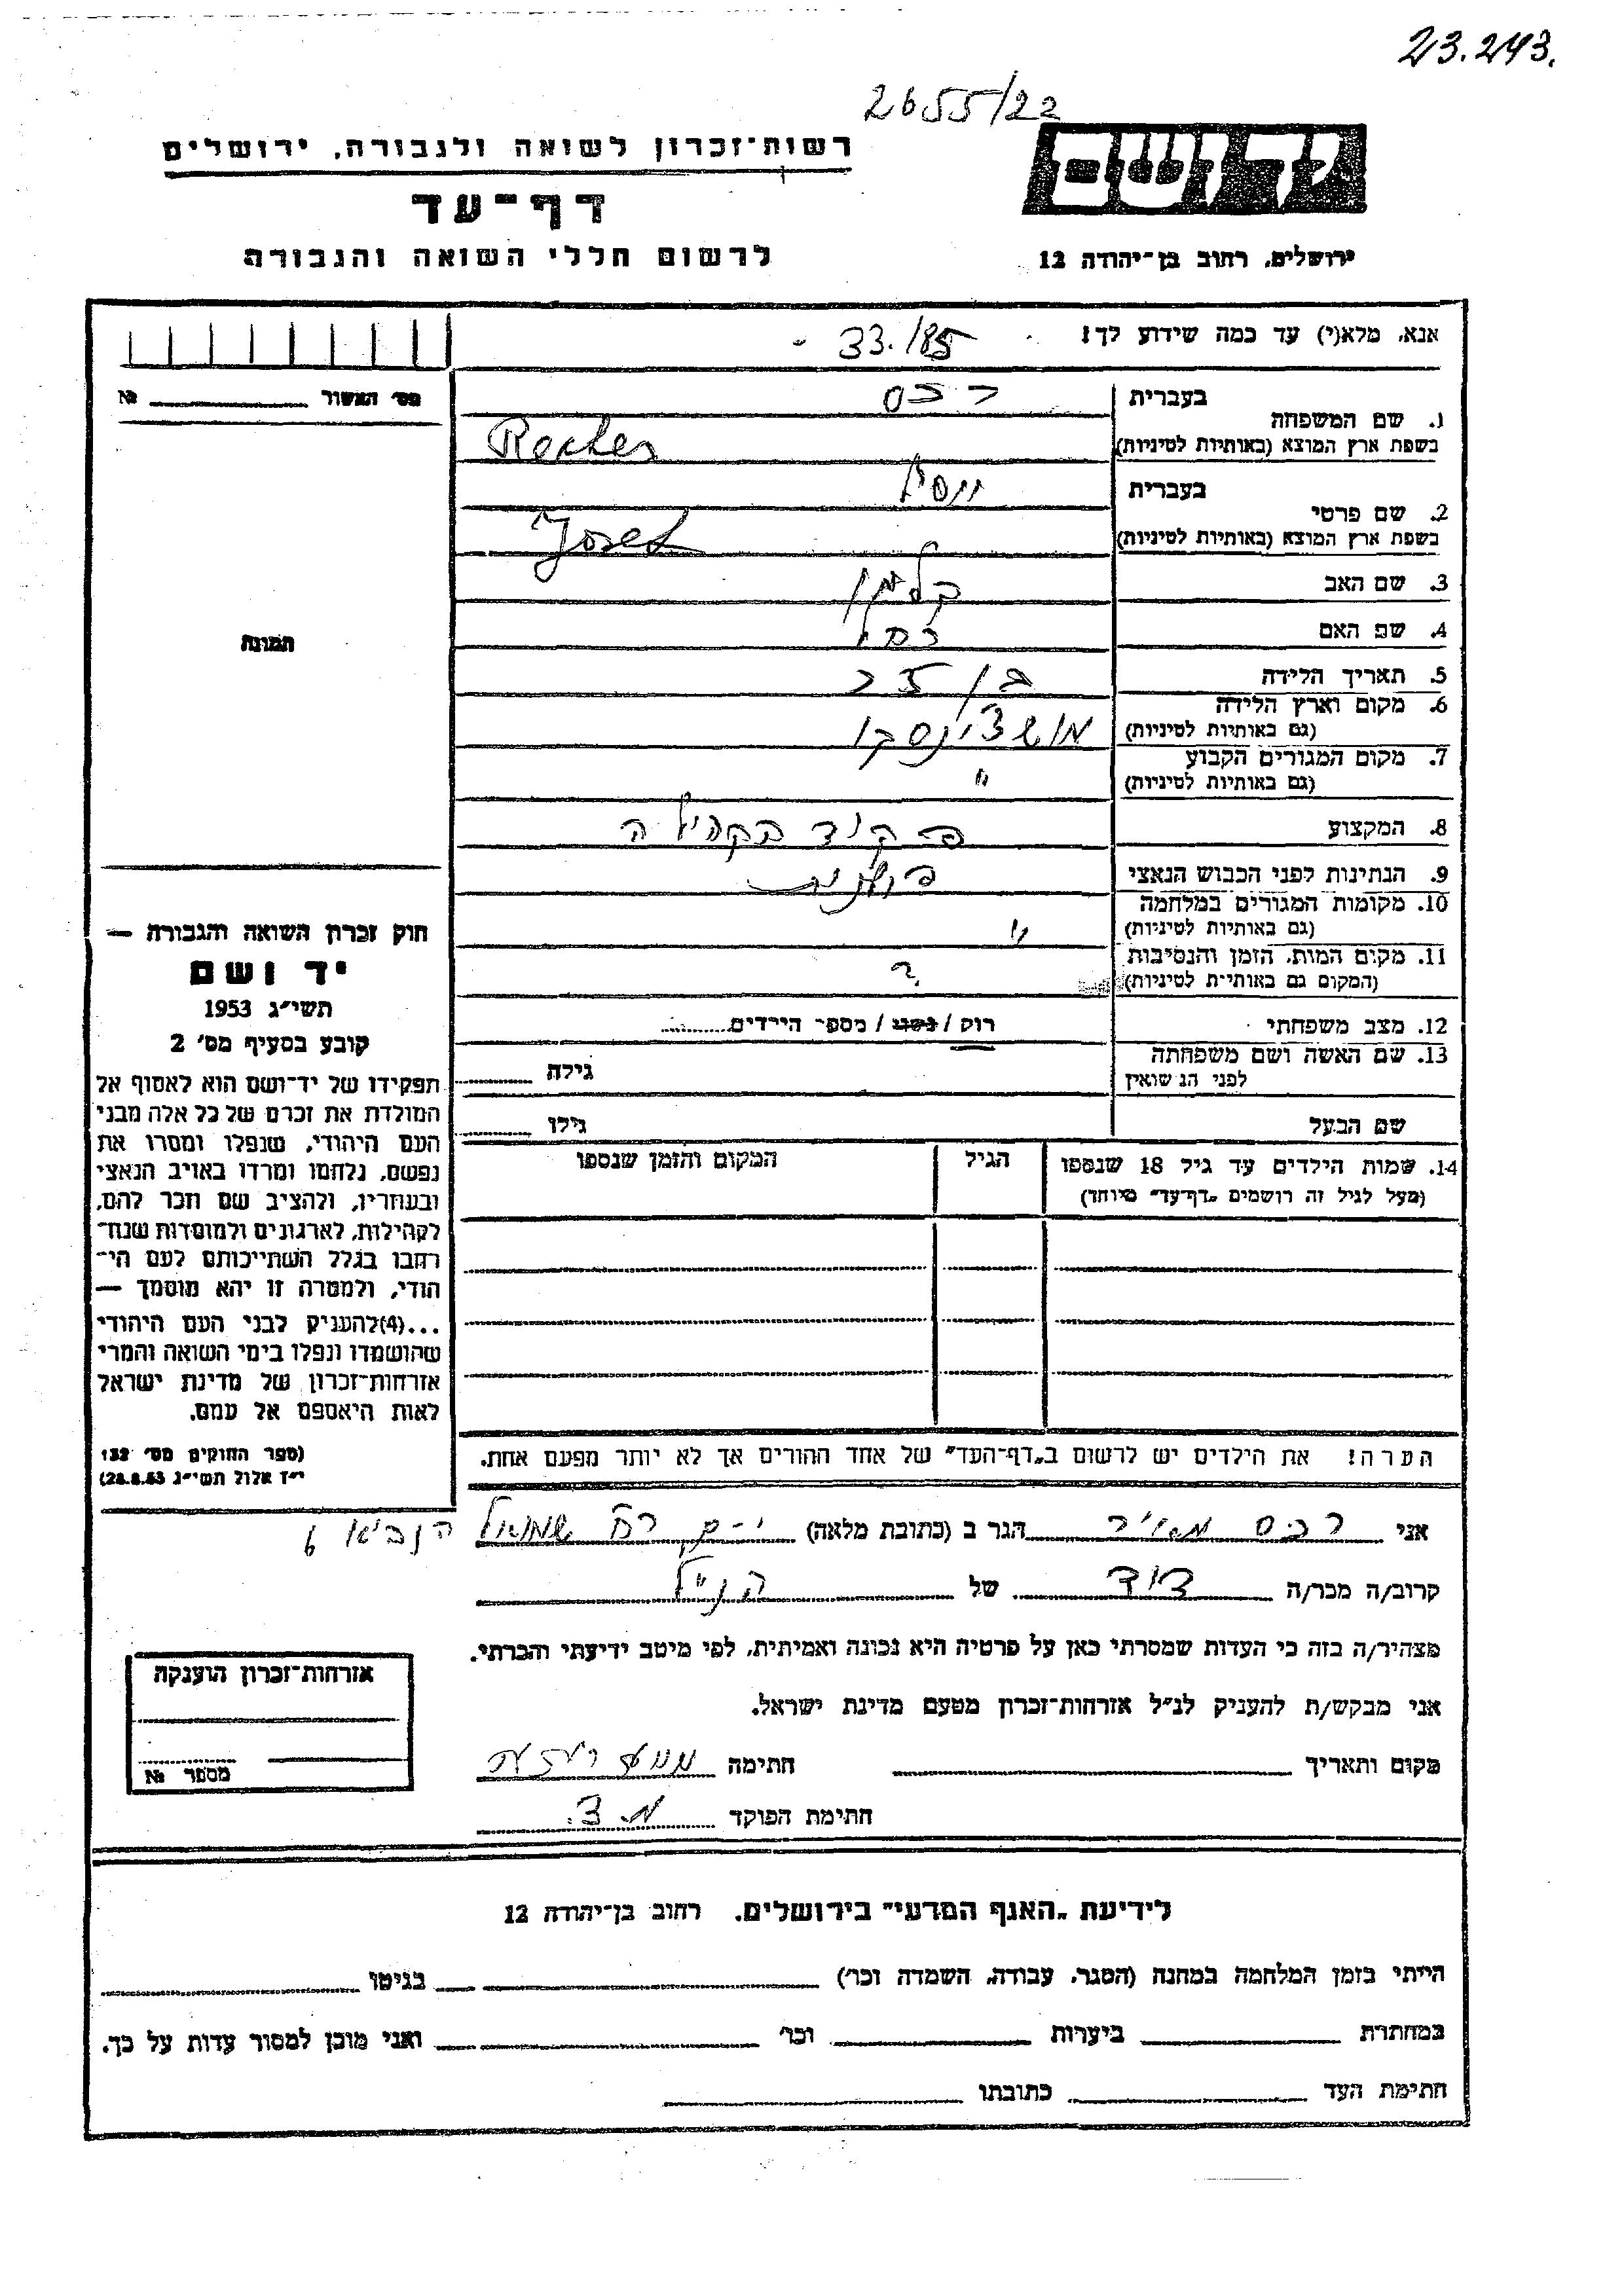 23.243.
2655/22
יד ושם
רשות־זכרון לשואה ולגבורה, ירושלים
דף־עד
לרשום חללי השואה והגבורה
ירושלים, רחוב בן־יהודה 12
אנא, מלא(י) עד כמה שידוע לך!
33./85
מס' האשור №
1. שם המשפחה
בעברית רכס
בשפת ארץ המוצא (באותיות לטיניות)
2. שם פרטי
בעברית יוסף
בשפת ארץ המוצא (באותיות לטיניות) Josef
3. שם האב קלמן
4. שם האם רחל
5. תאריך הלידה בן
6. מקום וארץ הלידה
(גם באותיות לטיניות)
7. מקום המגורים הקבוע "
(גם באותיות לטיניות)
8. המקצוע פקיד בקהילה
9. הנתינות לפני הכבוש הנאצי
10. מקומות המגורים במלחמה "
(גם באותיות לטיניות)
11. מקום המות, הזמן והנסיבות ?
(המקום גם באותיית לטיניות)
12. מצב משפחתי רוק / נשוי / מספר הילדים
13. שם האשה ושם משפחתה
לפני הנשואין
גילה
שם הבעל גילו
14. שמות הילדים עד גיל 18 שנספו
(מעל לגיל זה רושמים „דף־עד" מיוחד)
הגיל
המקום והזמן שנספו
הערה! את הילדים יש לרשום ב„דף־העד" של אחד ההורים אך לא יותר מפעם אחת.
התמונה
חוק זכרון השואה והגבורה —
יד ושם
תשי"ג 1953
קובע בסעיף מס' 2
תפקידו של יד־ושם הוא לאסוף אל
המולדת את זכרם של כל אלה מבני
העם היהודי, שנפלו ומסרו את
נפשם, נלחמו ומרדו באויב הנאצי
ובעוזריו, ולהציב שם וזכר להם,
לקהילות, לארגונים ולמוסדות שנח־
רחבו בגלל השתייכותם לעם הי־
הודי, ולמטרה זו יהא מוסמך —
...(4)להעניק לבני העם היהודי
שהושמדו ונפלו בימי השואה והמרי
אזרחות־זכרון של מדינת ישראל
לאות היאספם אל עמם.
(ספר החוקים מס' 132
י"ז אלול תשי"ג 28.8.53)
אני רכס מאיר הגר ב (כתובת מלאה) י-ם רח' שמואל הנביא 6
קרוב/ה מכר/ה דוד של הנ"ל
מצהיר/ה בזה כי העדות שמסרתי כאן על פרטיה היא נכונה ואמיתית, לפי מיטב ידיעתי והכרתי.
אני מבקש/ת להעניק לנ"ל אזרחות־זכרון מטעם מדינת ישראל.
מקום ותאריך חתימה
חתימת הפוקד
אזרחות־זכרון הוענקה
מספר №
לידיעת „האגף המדעי" בירושלים. רחוב בן־יהודה 12
הייתי בזמן המלחמה במחנה (הסגר, עבודה, השמדה וכו') בגיטו
במחתרת ביערות וכו' ואני מוכן למסור עדות על כך.
חתימת העד כתובתו